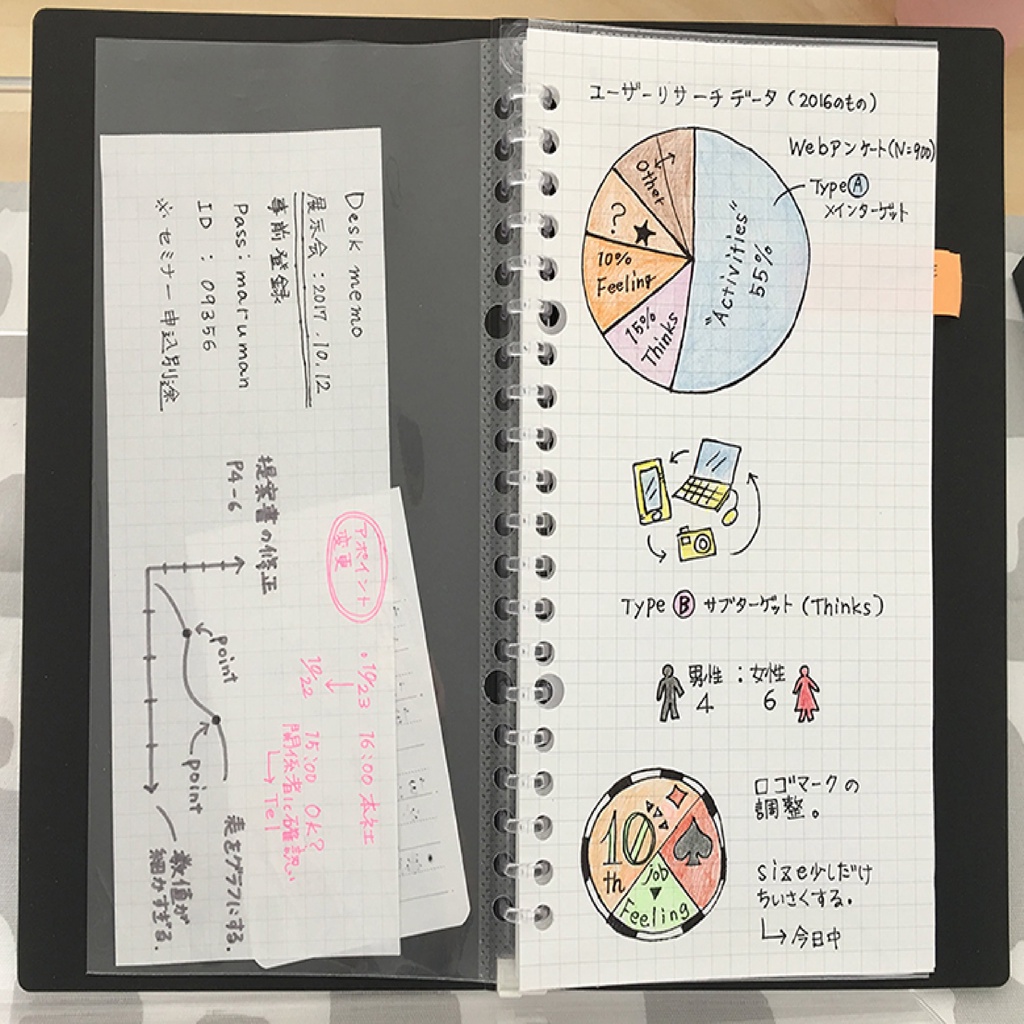 Desk memo
展示会：2017.10.12
事前登録
Pass：maruman
ID：09356
※セミナー申込別途
提案書の修正
P4-6
point
point
表をグラフにする。
数値が
細かすぎる。
アポイント
変更
・10/23 16:00 本社
↓
10/22 15:00 OK?
関係者に確認
→Tel
ユーザーリサーチデータ（2016のもの）
Webアンケート(N=900)
Type Ⓐ
メインターゲット
Other
?
★
10%
Feeling
15%
Thinks
"Activities"
55%
Type Ⓑ サブターゲット（Thinks）
男性：女性
4 6
10
th
job
▼
Feeling
ロゴマークの
調整。
size少しだけ
ちいさくする。
→今日中